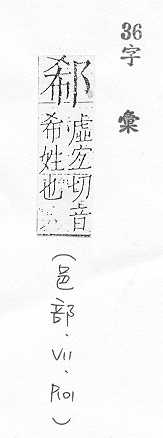 36字彙
郗
虛宐切音
希姓也
（邑部．VII．P.101）